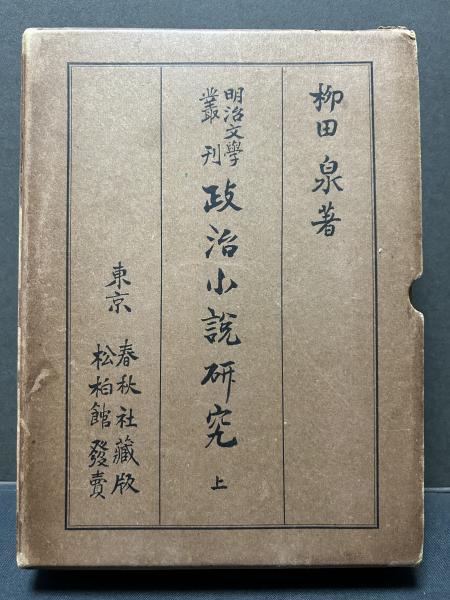 柳田泉著
明治文學
叢刊
政治小説研究 上
東京
春秋社藏版
松柏館發賣